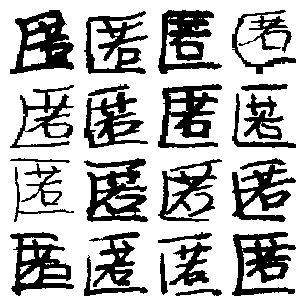 匿匿匿匿
匿匿匿匿
匿匿匿匿
匿匿匿匿